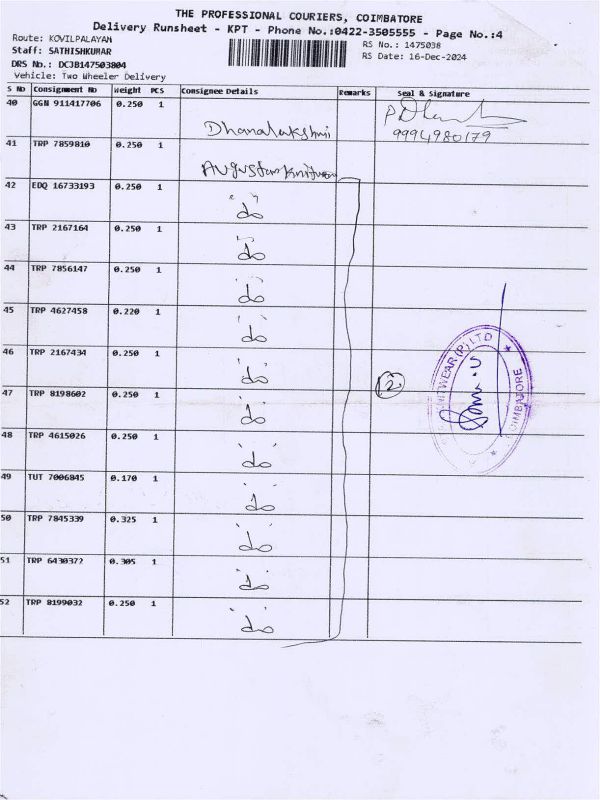 THE PROFESSIONAL COURIERS, COIMBATORE
Delivery Runsheet - KPT - Phone No.:0422-3505555 - Page No.:4
Route: KOVILPALAYAM
Staff: SATHISHKUMAR
DRS No.: DCJB147503804
Vehicle: Two Wheeler Delivery
RS No.: 1475038
RS Date: 16-Dec-2024
S No Consignment No Weight PCS Consignee Details Remarks Seal & Signature
40 GGN 911417706 0.250 1 Dhanalakshmi
9994980179
41 TRP 7859810 0.250 1
42 EDQ 16733193 0.250 1 do
43 TRP 2167164 0.250 1 do
44 TRP 7856147 0.250 1 do
45 TRP 4627458 0.220 1 do
46 TRP 2167434 0.250 1 do
47 TRP 8198602 0.250 1 do
48 TRP 4615026 0.250 1 do
49 TUT 7006845 0.170 1 do
50 TRP 7845339 0.325 1 do
51 TRP 6430372 0.305 1 do
52 TRP 8199032 0.250 1 do
12
WEAR (P) LTD
COIMBATORE